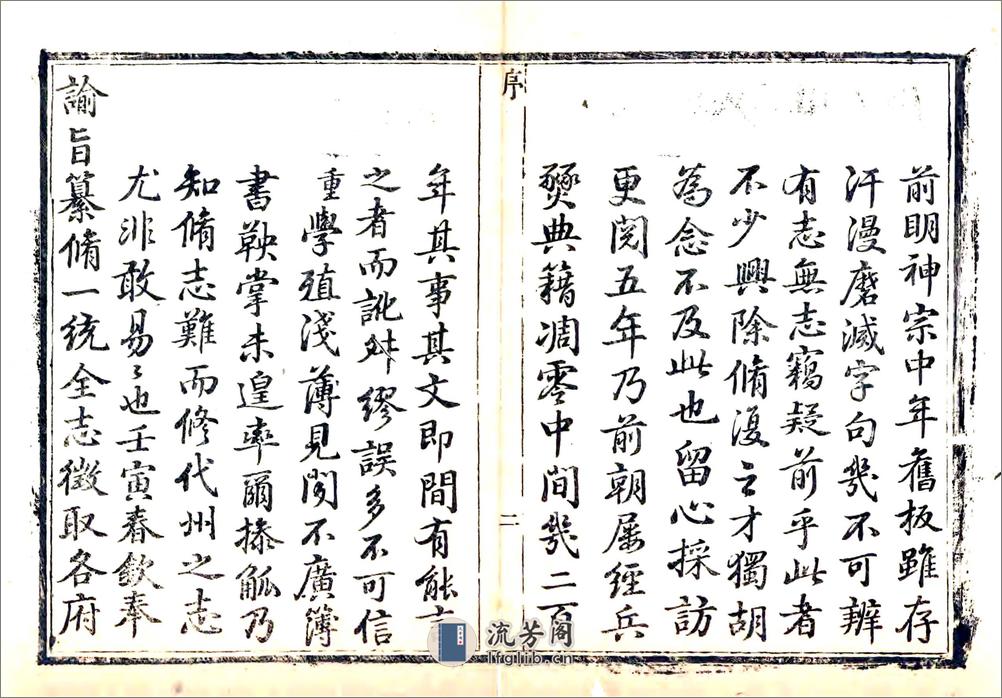 前明神宗中年舊板雖存
汗漫磨滅字句幾不可辨
有志無志竊疑前乎此者
不少興除脩復之才獨胡
為念不及此也留心採訪
更閱五年乃前朝屡經兵
燹典籍凋零中間幾二百
序
二
年其事其文即間有能言
之者而訛舛繆誤多不可信
重學殖淺薄見聞不廣簿
書鞅掌未遑率爾掾觚乃
知脩志難而修代州之志
尤非敢易〻也壬寅春欽奉
諭旨纂脩一統全志徵取各府
流芳阁
lfglib.cn